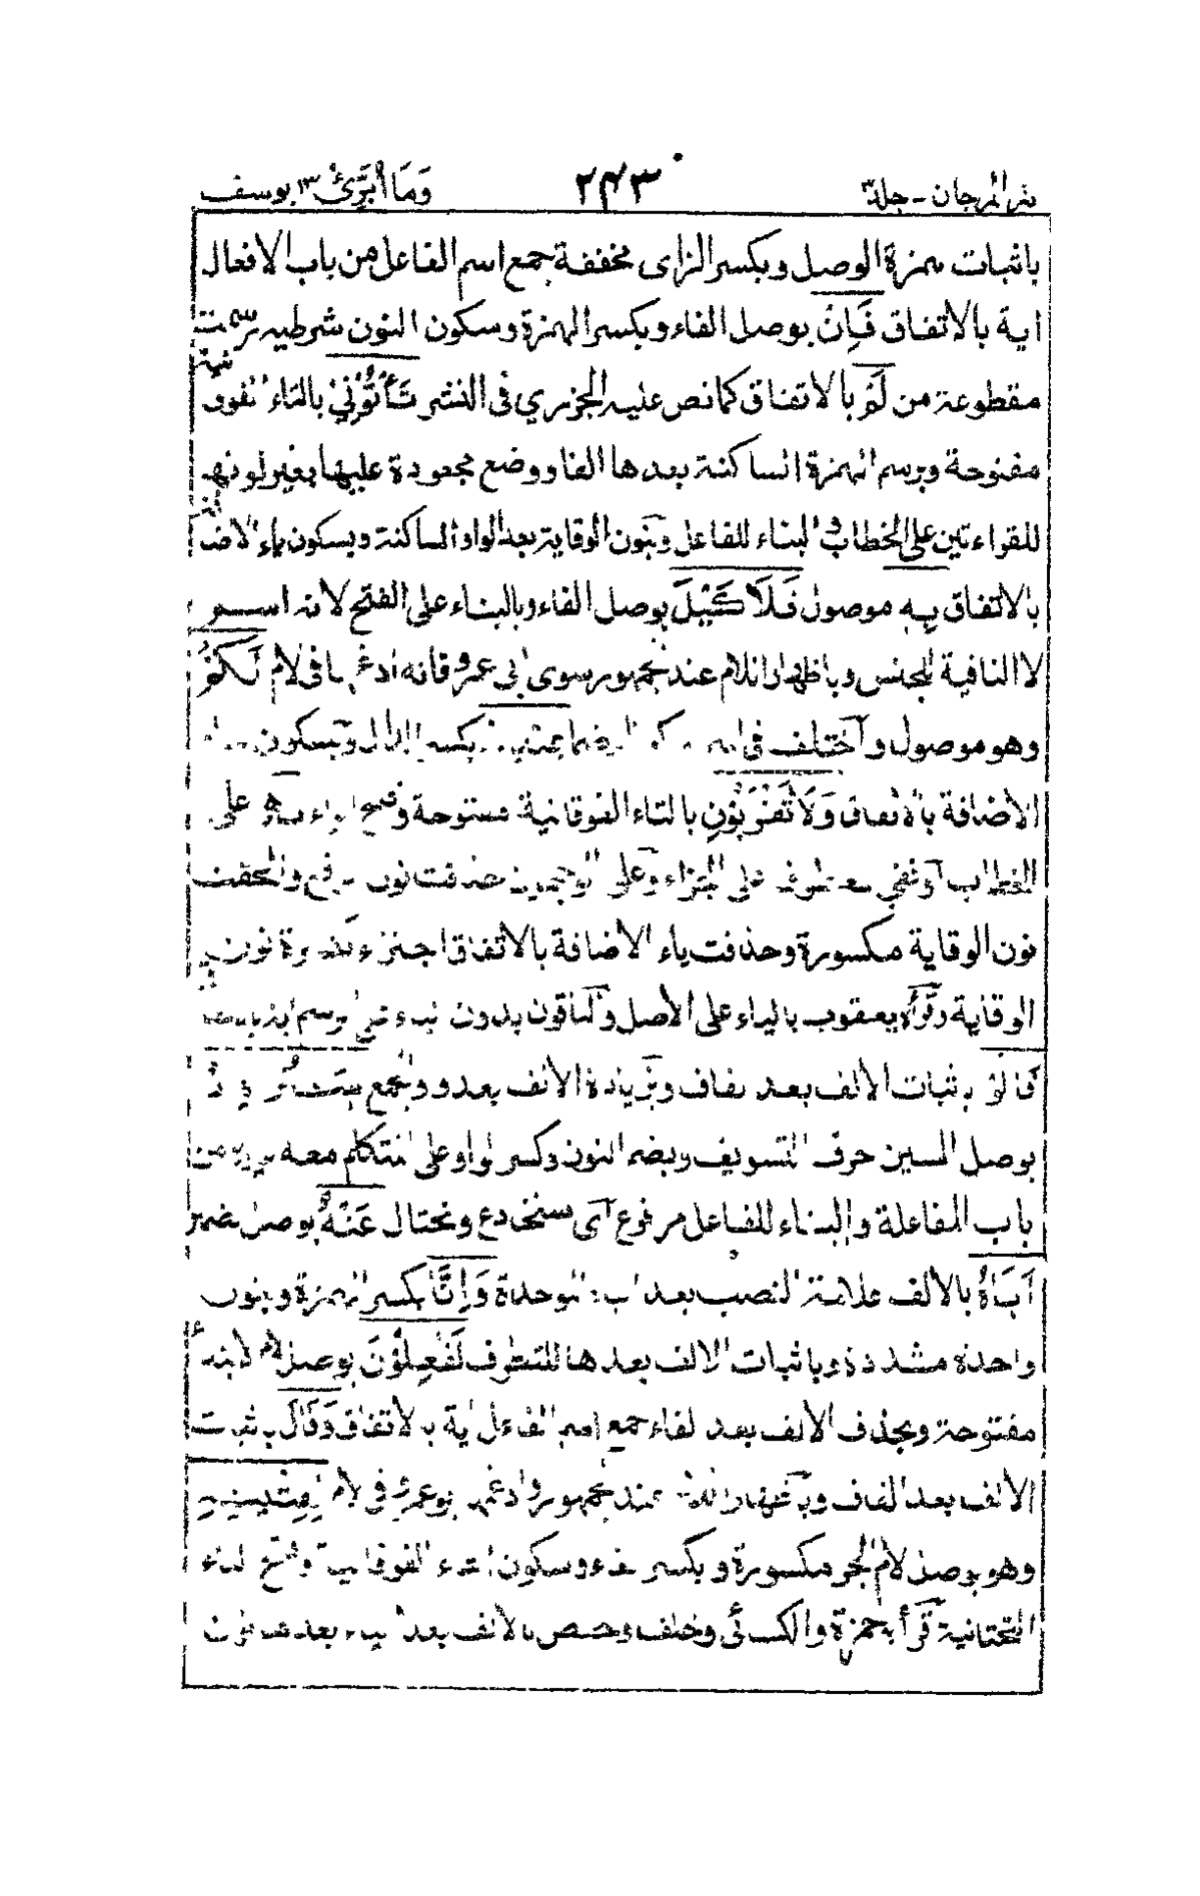 نثر المرجان - جلد ٣ ٢٤٣ وَمَا أُبَرِّئُ ١٣ يوسف
باثبات همزة الوصل وبكسر الزاى مخففة جمع اسم الفاعل من باب الافعال
اية بالاتفاق فَاِنْ بوصل الفاء وبكسر الهمزة وسكون النون شرطيه رسمت
مقطوعة من لَمْ بالاتفاق كما نص عليه الجزري فى النشر تَأْتُوْنِيْ بالتاء
مفتوحة وبرسم الهمزة الساكنة بعدها الفا ووضع مجعودة عليها بغير لونها
للقراءتين على الخطاب والبناء للفاعل وبنون الوقاية بعد الواو الساكنة وبسكون ياء الاضا
بالاتفاق بِهٖ موصول فَلَا كَيْلَ بوصل الفاء وبالبناء على الفتح لانه اسم
لا النافية للجنس وباظهار اللام عند الجمهور سوى ابى عمرو فانه ادغمها فى لام لَكُمْ
وهو موصول واختلف فى بكسر الدال وبسكون
الاضافة بالاتفاق وَلَا تَقْرَبُوْنِ بالتاء الفوقانية مفتوحة وفتح الراء على
الخطاب او نفي معطوف على الجزاء وعلى الوجهين حذفت نون الرفع والحقت
نون الوقاية مكسورة وحذفت ياء الاضافة بالاتفاق اجتزاء بكسرة نون
الوقاية وقرأه يعقوب بالياء على الأصل والباقون بدون الياء
قَالُوْا باثبات الالف بعد القاف وبزيادة الالف بعد واو الجمع
بوصل السين حرف التسويف وبضم النون وكسر الواو على المتكلم معه غيره من
باب المفاعلة والبناء للفاعل مرفوع اى سنخادع ونحتال عَنْهُ بوصل الضمير
اَبَاهُ بالالف علامة النصب بعد الباء الموحدة وَاِنَّا بكسر الهمزة وبنون
واحدة مشددة وباثبات الالف بعدها للتطرف لَفٰعِلُوْنَ بوصل لام الابتداء
مفتوحة وبحذف الالف بعد الفاء جمع اسم الفاعل اية بالاتفاق وَقَالَ باثبات
الالف بعد القاف وباظهار اللام عند الجمهور وادغمه ابو عمرو فى لام لِفِتْيٰنِهِ
وهو بوصل لام الجر مكسورة وبكسر الفاء وسكون التاء الفوقانية وفتح الياء
التحتانية قرأ به حمزة والكسائى وخلف وحفص بالالف بعد الياء بعدها نون